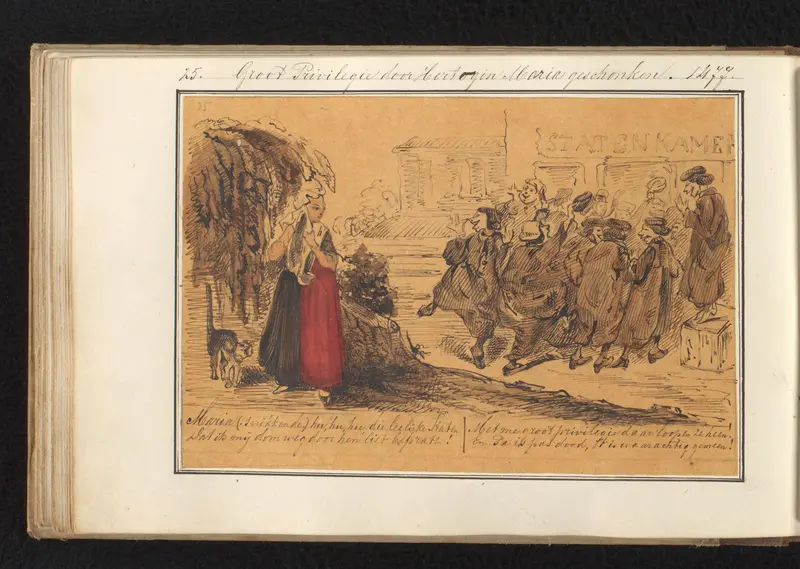 25. Groot Privilegie door Hertogin Maria geschonken. 1477.
25
STATENKAMER
Maria (snikkende) hu, hu, hu die leelijke Staten
Dat ik mij dom weg door hen liet
Met me groot privilegie daar loopen ze heen,
En Pa is pas dood, 't is waarachtig gemeen!